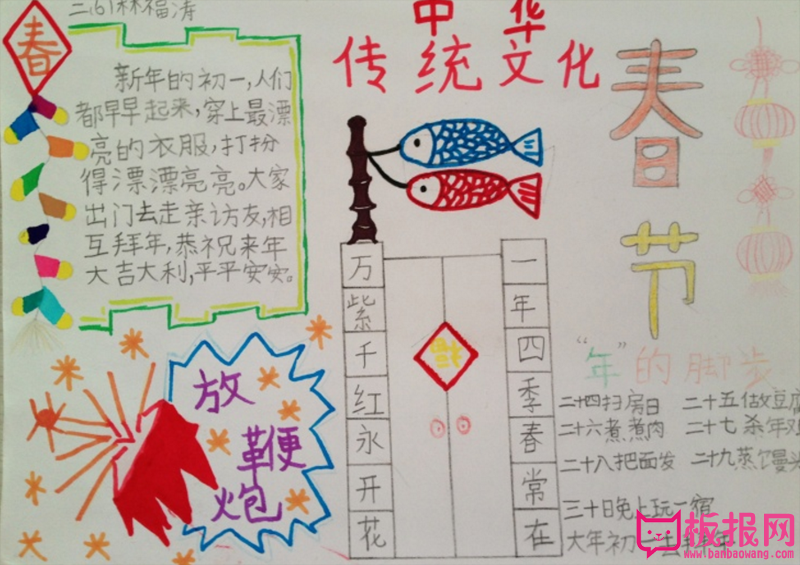 二(6)林福涛
春
中华
传统文化
新年的初一,人们
都早早起来,穿上最漂
亮的衣服,打扮
得漂漂亮亮。大家
出门去走亲访友,相
互拜年,恭祝来年
大吉大利,平平安安。
春
节
放
鞭
炮
一年四季春常在
万紫千红永开花
福
“年”的脚步
二十四扫房日 二十五做豆腐
二十六煮煮肉 二十七杀年鸡
二十八把面发 二十九蒸馒头
三十日晚上玩一宿
大年初一去拜年
板报网
www.banbaowang.com